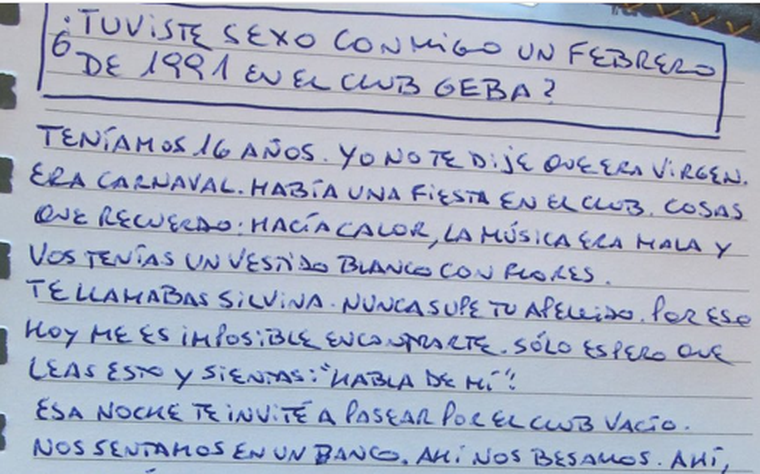 ¿TUVISTE SEXO CONMIGO UN FEBRERO
DE 1991 EN EL CLUB GEBA?
TENÍAMOS 16 AÑOS. YO NO TE DIJE QUE ERA VIRGEN.
ERA CARNAVAL. HABÍA UNA FIESTA EN EL CLUB. COSAS
QUE RECUERDO: HACÍA CALOR, LA MÚSICA ERA MALA Y
VOS TENÍAS UN VESTIDO BLANCO CON FLORES.
TE LLAMABAS SILVINA. NUNCA SUPE TU APELLIDO. POR ESO
HOY ME ES IMPOSIBLE ENCONTRARTE. SÓLO ESPERO QUE
LEAS ESTO Y SIENTAS: "HABLA DE MÍ".
ESA NOCHE TE INVITÉ A PASEAR POR EL CLUB VACÍO.
NOS SENTAMOS EN UN BANCO. AHÍ NOS BESAMOS. AHÍ,